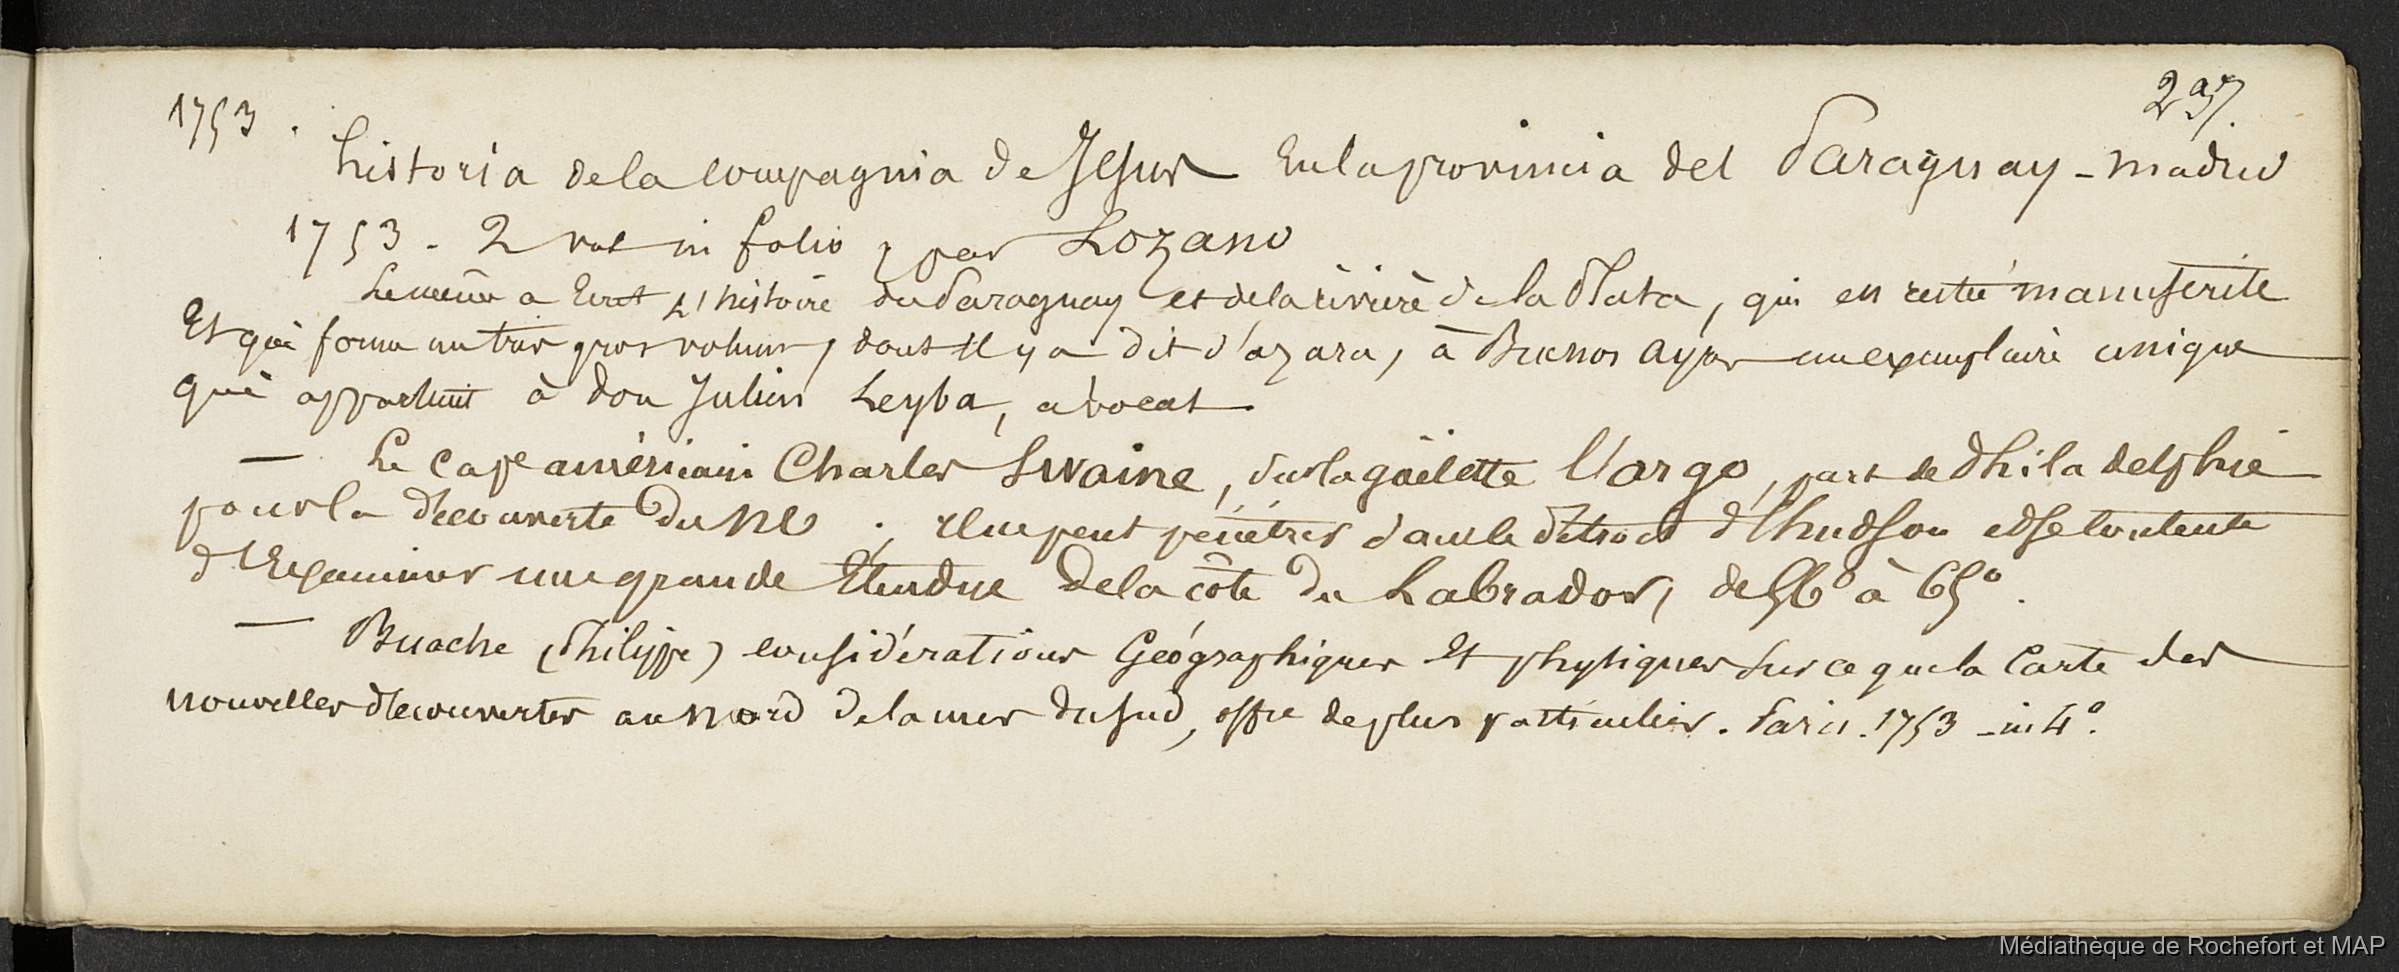 237.
1753.
historia de la compagnia de Jesus en la provincia del Paraguay - madrid
1753 - 2 vol in folio, par Lozano
Le même a Ecrit L'histoire du Paraguay et de la rivière de la Plata, qui en restée manuscrite
Et qui forme un tres gros volume, dont il y a dit d'azara, à Buenos ayres un exemplaire unique
qui appartient à don Julien Leyba, avocat.
— Le cape américain Charles Swaine, sur la goëlette l'argo, part de Philadelphie
pour la découverte du NO ; il ne peut pénétrer dans le détroit d'hudson et se contente
d'Examiner une grande Etendue de la côte du Labrador, de 56° à 65°.
— Buache (Philippe) considérations Géographiques Et physiques sur ce que la Carte des
nouvelles découvertes au nord de la mer du sud, offre de plus particulier. Paris. 1753 - in 4°.
Médiathèque de Rochefort et MAP